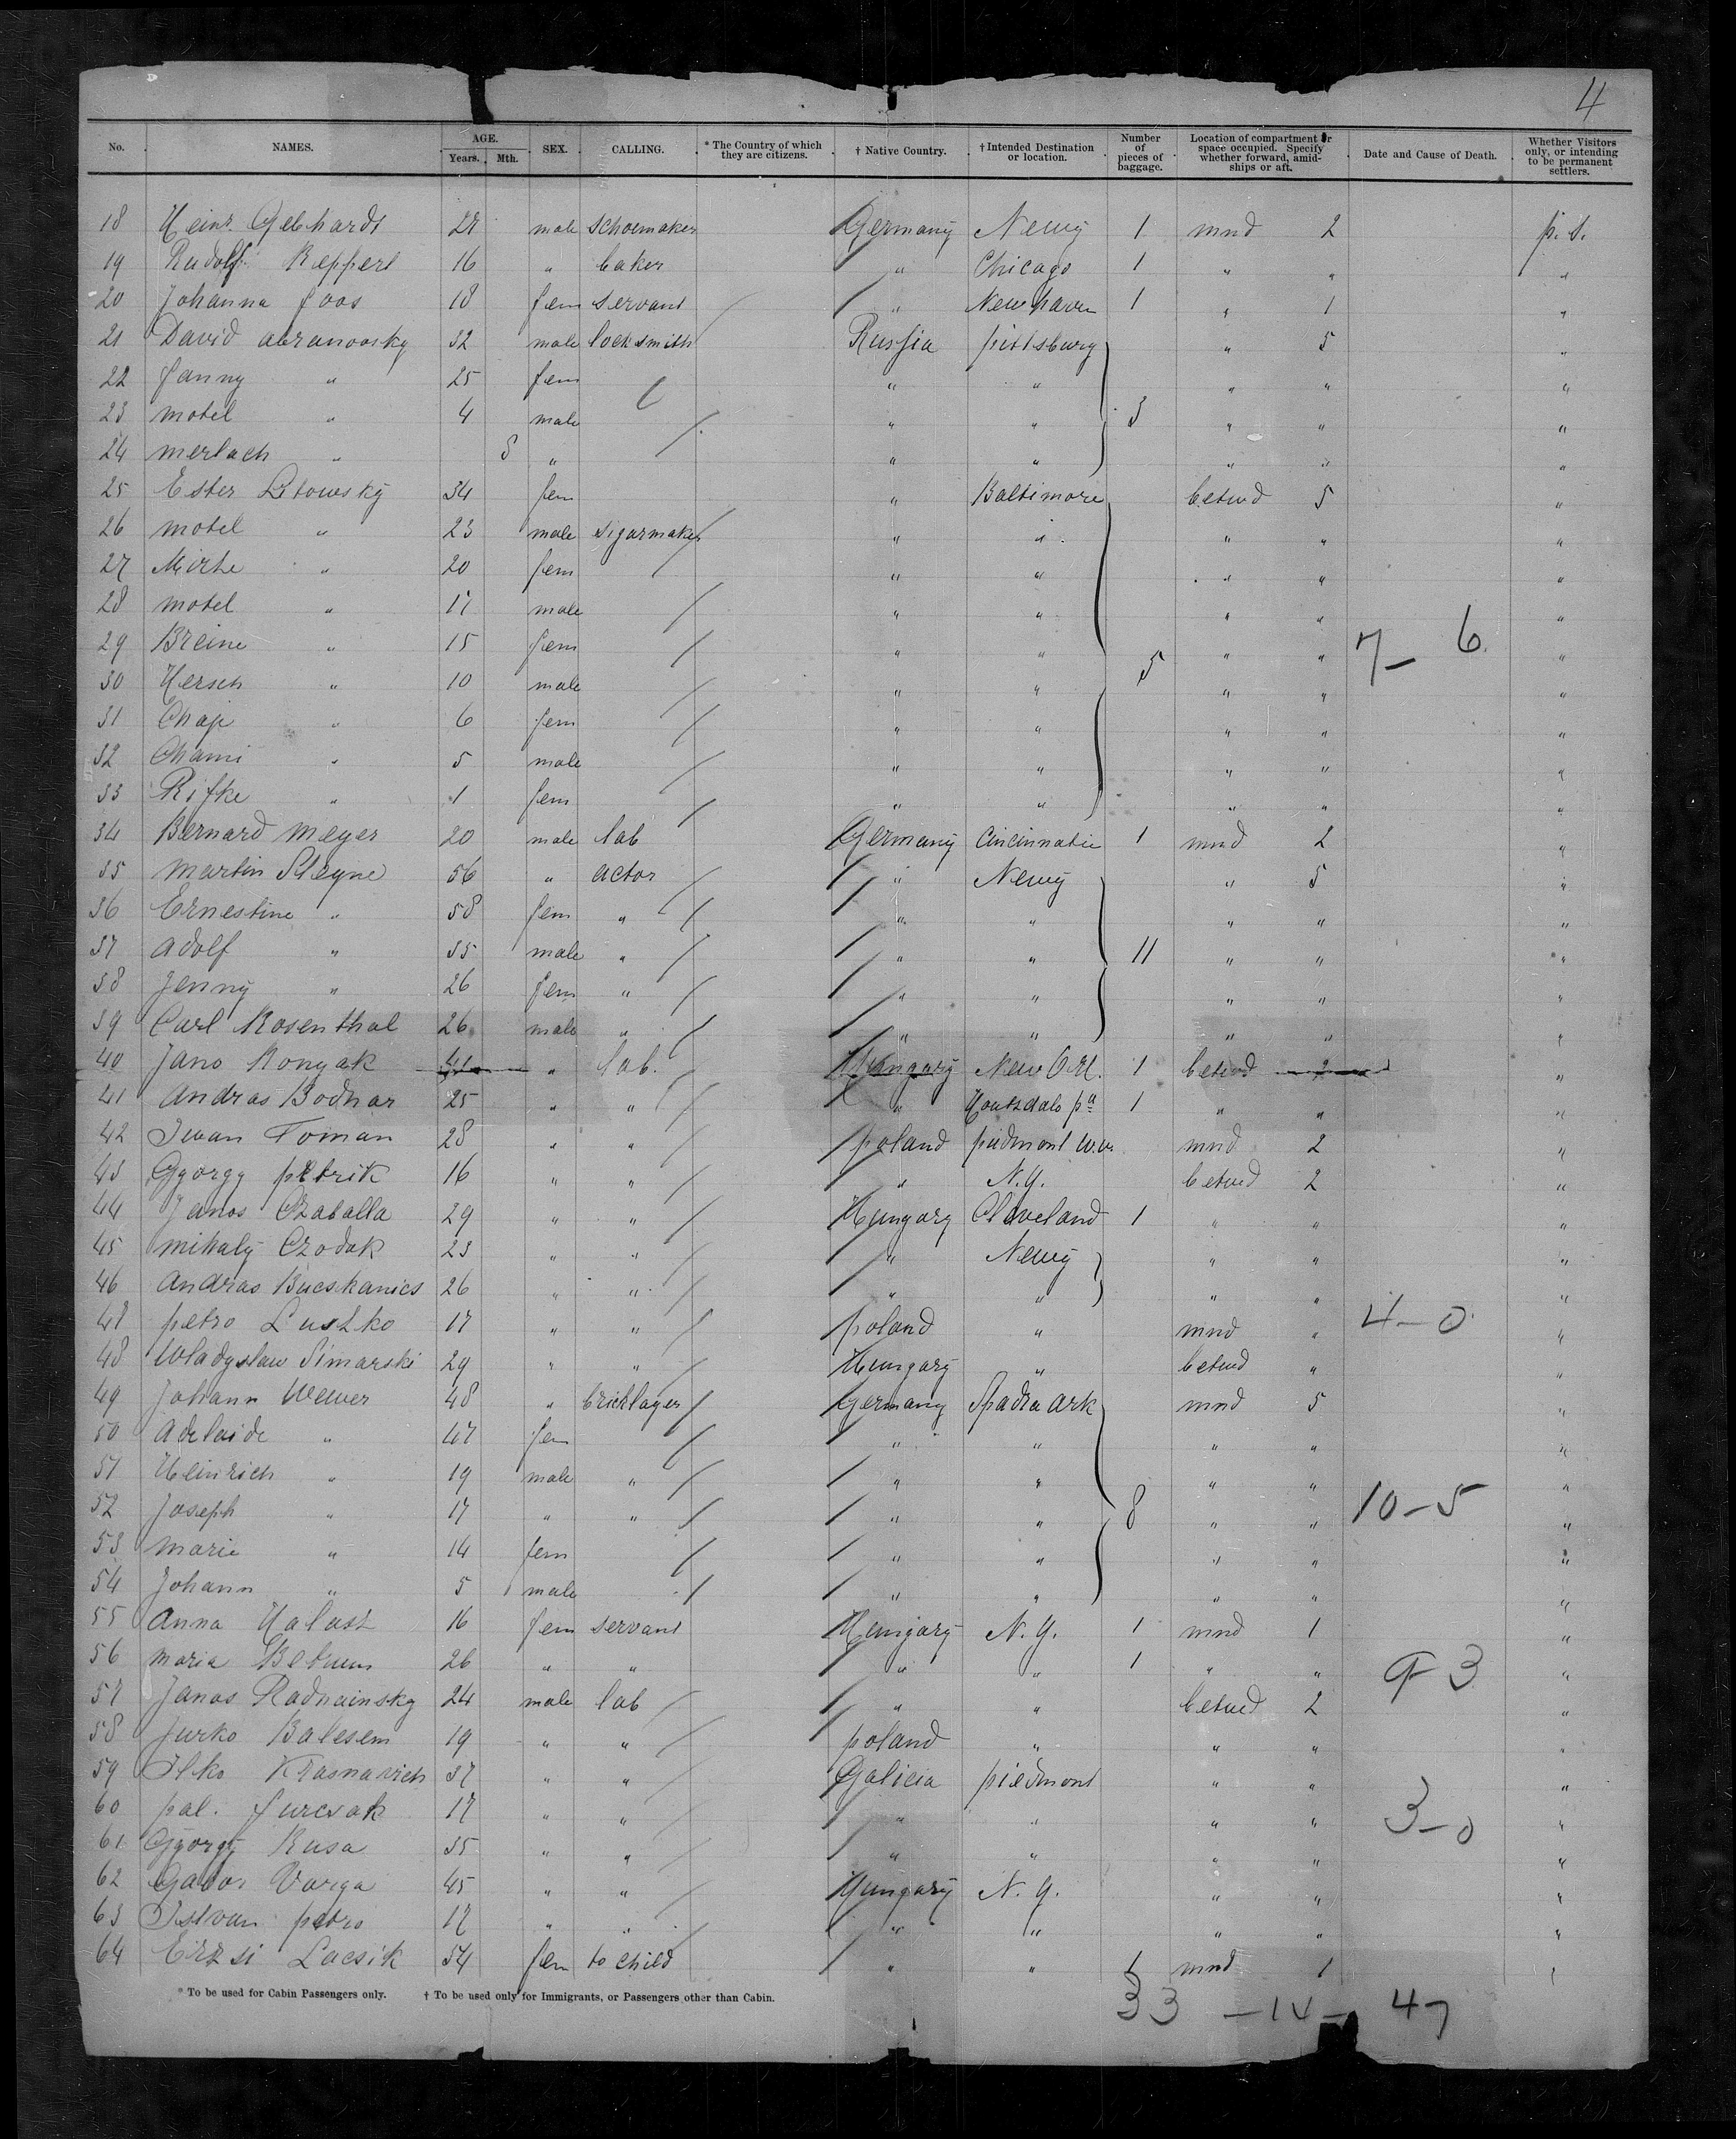 4
No. NAMES. AGE. Years. Mth. SEX. CALLING. * The Country of which they are citizens. † Native Country. † Intended Destination or location. Number of pieces of baggage. Location of compartment or space occupied. Specify whether forward, amidships or aft. Date and Cause of Death. Whether Visitors only, or intending to be permanent settlers.
18 Heinr. Gebhardt 27 male schoemaker Germany Newy 1 mnd 2 p. s.
19 Rudolf Reppert 16 " baker " Chicago 1 " " "
20 Johanna Joos 18 fem servant " Newhaven 1 " 1 "
21 David abranovsky 32 male locksmith Russia pittsburg " 5 "
22 Fanny " 25 fem " " " " "
23 motel " 4 male " " 3 " " "
24 merlach " 8 " " " " " "
25 Ester Litowsky 34 fem " Baltimore betwd 5 "
26 motel " 23 male sigarmaker " " " " "
27 Mirhe " 20 fem " " " " "
28 motel " 17 male " " " " "
29 Breine " 15 fem " " 5 " " 7 - 6 "
30 Hersch " 10 male " " " " "
31 Chaje " 6 fem " " " " "
32 Chami " 5 male " " " " "
33 Rifke " 1 fem " " " " "
34 Bernard Meyer 20 male lab Germany Cincinnatie 1 mnd 2 "
35 Martin Steyne 56 " actor " Newy " 5 "
36 Ernestine " 58 fem " " " " " "
37 Adolf " 35 male " " " 11 " " "
38 Jenny " 26 fem " " " " " "
39 Carl Rosenthal 26 male " " " " " "
40 Jano Konyak 41 " lab. Hungary New Orl. 1 betwd 2 "
41 Andras Bodnar 25 " " " Houtzdale pa 1 " " "
42 Iwan Toman 28 " " poland piedmont W.v. mnd 2 "
43 Gyorgy petrik 16 " " " N.y. betwd 2 "
44 Janos Czaballa 29 " " Hungary Cleveland 1 " " "
45 mihaly Czodak 23 " " " Newy " " "
46 Andras Bucskanics 26 " " " " " " "
47 petro Lushko 17 " " poland " mnd " 4 - 0 "
48 Wladyslaw Simarski 29 " " Hungary " betwd " "
49 Johann Wewer 48 " bricklayer Germany Spadra Ark mnd 5 "
50 Adelaide " 47 fem " " " " "
51 Heinrich " 19 male " " " " " "
52 Joseph " 17 " " " " 8 " " 10 - 5 "
53 marie " 14 fem " " " " "
54 Johann " 5 male " " " " "
55 Anna Halast 16 fem servant Hungary N.y. 1 mnd 1 "
56 maria Betrum 26 " " " " 1 " " 9 - 3 "
57 Janos Radnainsky 24 male lab " " betwd 2 "
58 Jurko Balesem 19 " " poland " " " "
59 Ilko Krasnavich 37 " " Galicia piedmont " " "
60 pal. Jurcsak 17 " " " " " " 3 - 0 "
61 Gyorgy Rusa 35 " " " " " " "
62 Gabor Varga 45 " " Hungary N.y. " " "
63 Istvan petro 17 " " " " " " "
64 Erzsi Lacsik 54 fem to child " " 1 mnd 1 "
* To be used for Cabin Passengers only. † To be used only for Immigrants, or Passengers other than Cabin.
33 - 14 - 47